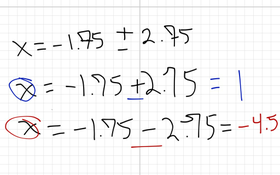 x = -1.75 ± 2.75
x = -1.75 + 2.75 = 1
x = -1.75 - 2.75 = -4.5